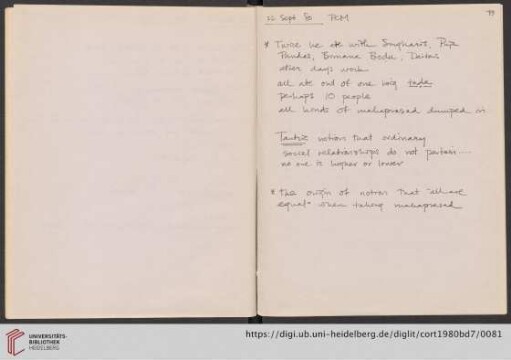 22 Sept 80 PCM
99
* Twice he ate with Singharis, Puja
Pandas, Daitas
other days work
all ate out of one big tada
perhaps 10 people
all kinds of mahaprasad dumped in
Tantric notion that ordinary
social relationships do not pertain ....
no one is higher or lower
* the origin of notion that "all are
equal" when taking mahaprasad
UNIVERSITÄTS-
BIBLIOTHEK
HEIDELBERG
https://digi.ub.uni-heidelberg.de/diglit/cort1980bd7/0081